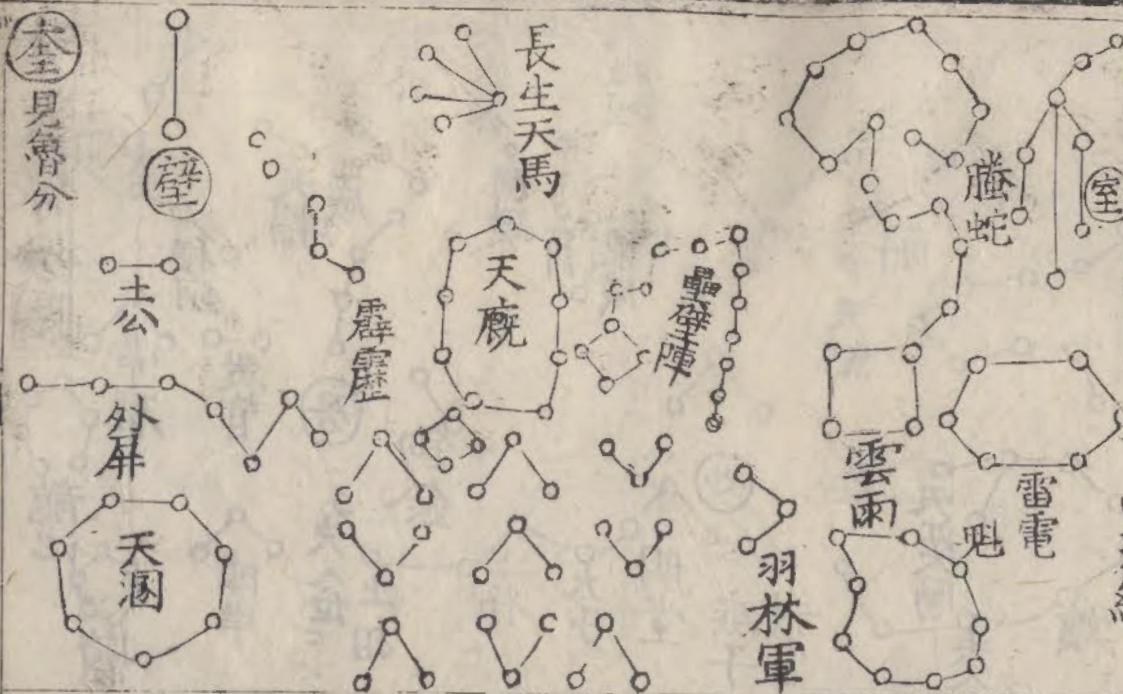 室
螣蛇
雷電
雲雨
魁
羽林軍
壘壁陣
長生天馬
天廄
霹靂
壁
土公
外屏
天溷
奎見魯分